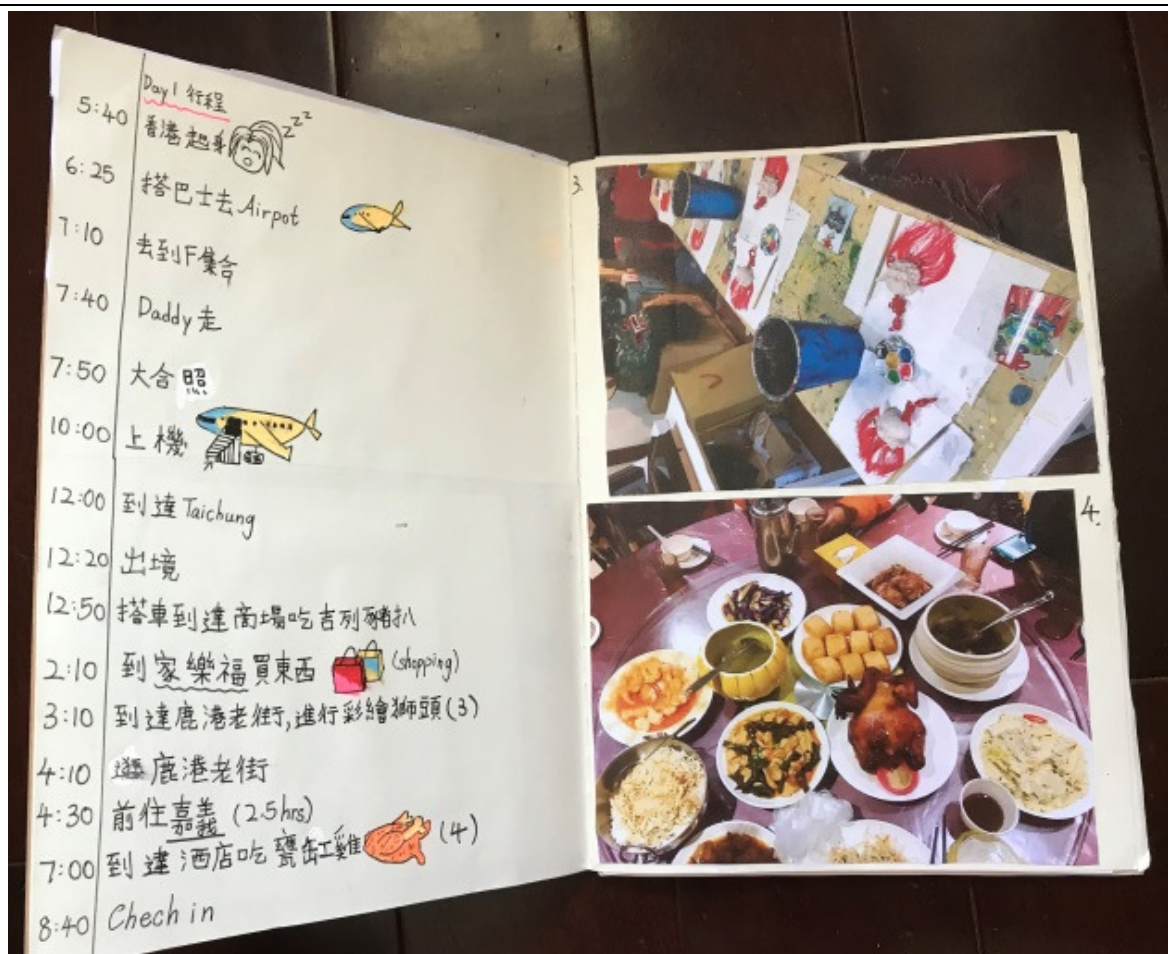 Day 1 行程
5:40 香港起身 zzz
6:25 搭巴士去 Airpot
7:10 去到F集合
7:40 Daddy 走
7:50 大合照
10:00 上機
12:00 到達 Taichung
12:20 出境
12:50 搭車到達商場吃吉列豬扒
2:10 到家樂福買東西 (shopping)
3:10 到達鹿港老街,進行彩繪獅頭(3)
4:10 遊鹿港老街
4:30 前往嘉義 (2.5hrs)
7:00 到達酒店吃甕缸雞 (4)
8:40 Chech in
3.
4.